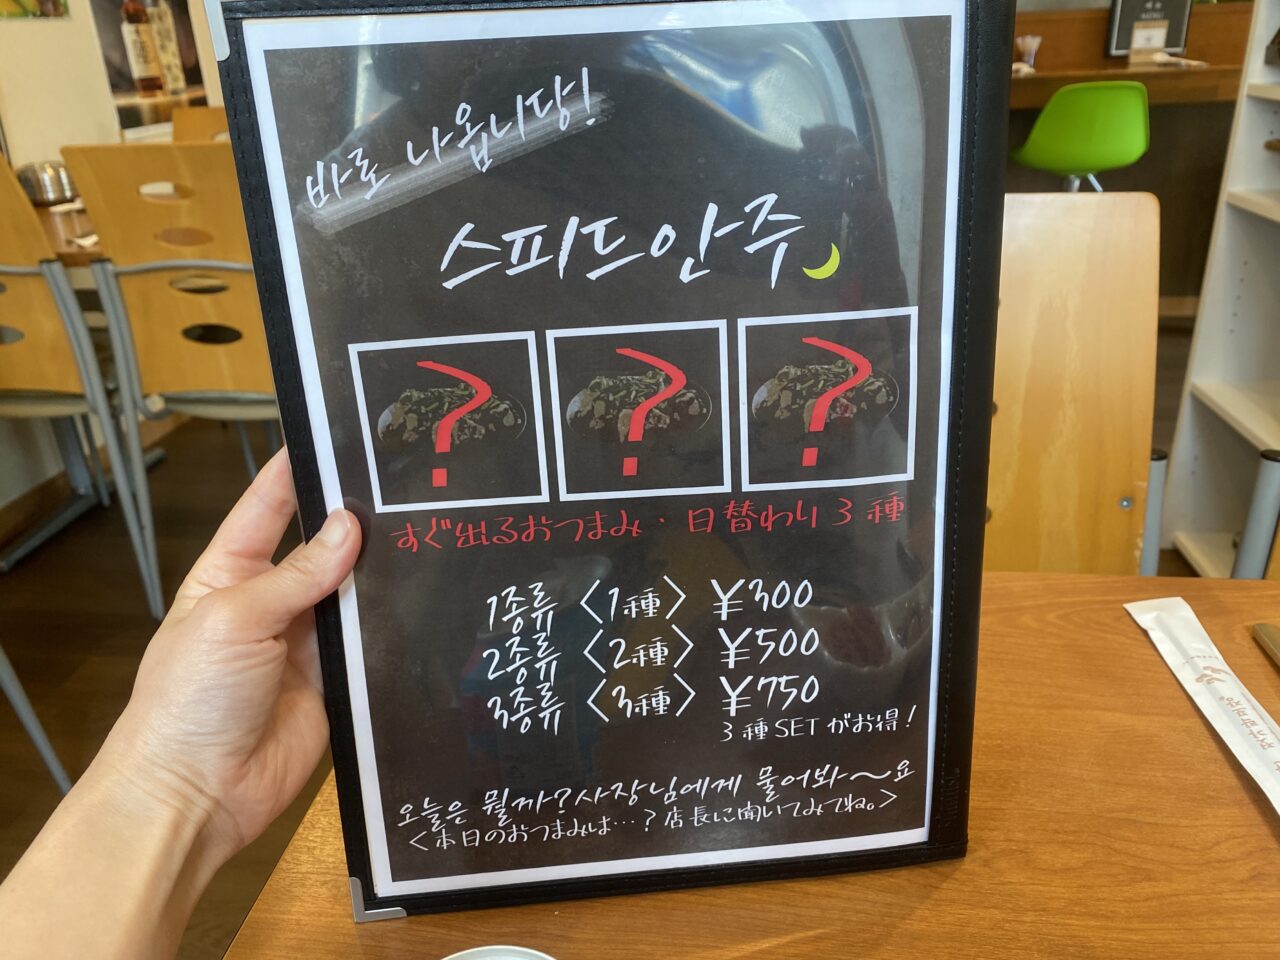 바로 나옵니당!
스피드안주
? ? ?
すぐ出るおつまみ・日替わり3種
1종류 〈1種〉 ¥300
2종류 〈2種〉 ¥500
3종류 〈3種〉 ¥750
3種SETがお得!
오늘은 뭘까?사장님에게 물어봐〜요
〈本日のおつまみは…?店長に聞いてみてね。〉